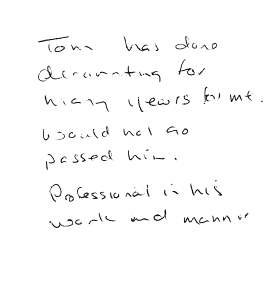 Tom has done
accounting for
many years for me.
would not go
passed him.
Professional in his
work and manner